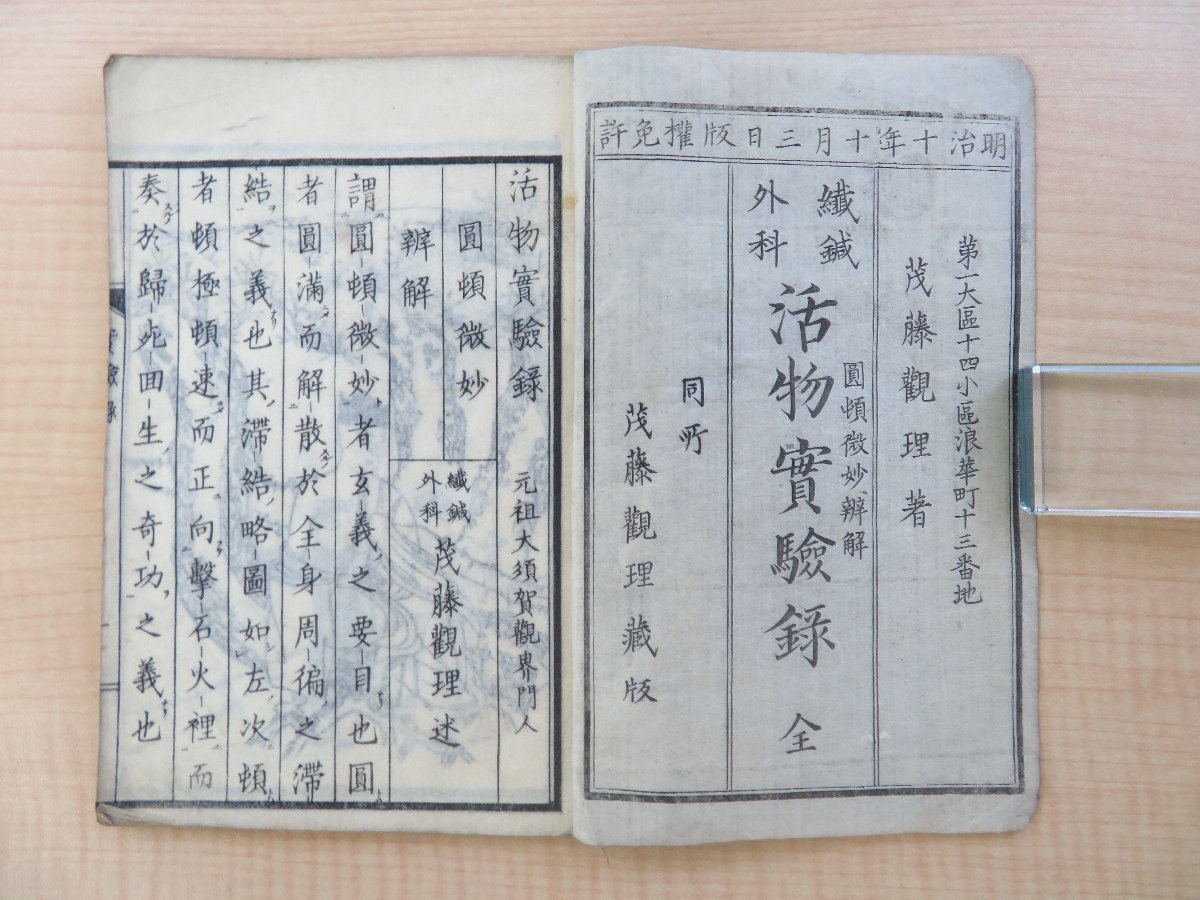 明治十年十月三日版權免許
第一大區十四小區浪華町十三番地
茂藤觀理著
纎鍼
外科
活物實驗錄 全
圓頓微妙辨解
同所
茂藤觀理藏版
活物實驗錄 元祖大須賀觀界門人
圓頓微妙
辨解
纎鍼
外科
茂藤觀理述
謂圓頓微妙者玄義之要目也圓
者圓滿而解散於全身周徧之滯
結之義也其滯結略圖如左次頓
者頓極頓速而正向擊石火裡而
奏於歸死回生之奇功之義也